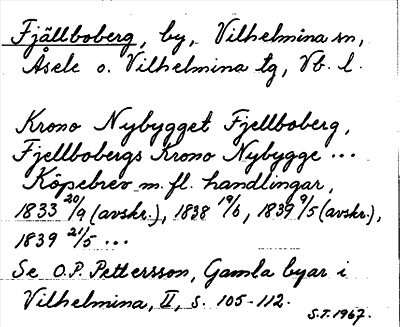 Fjällboberg, by, Vilhelmina sn,
Åsele o. Vilhelmina tg, Vb. l.
Krono Nybygget Fjellboberg,
Fjellbobergs Krono Nybygge ...
Köpebrev m. fl. handlingar,
1833 20/9 (avskr.), 1838 19/6, 1839 9/5 (avskr.),
1839 21/5 ...
Se O.P. Pettersson, Gamla byar i
Vilhelmina, II, s. 105-112.
S.T. 1967.